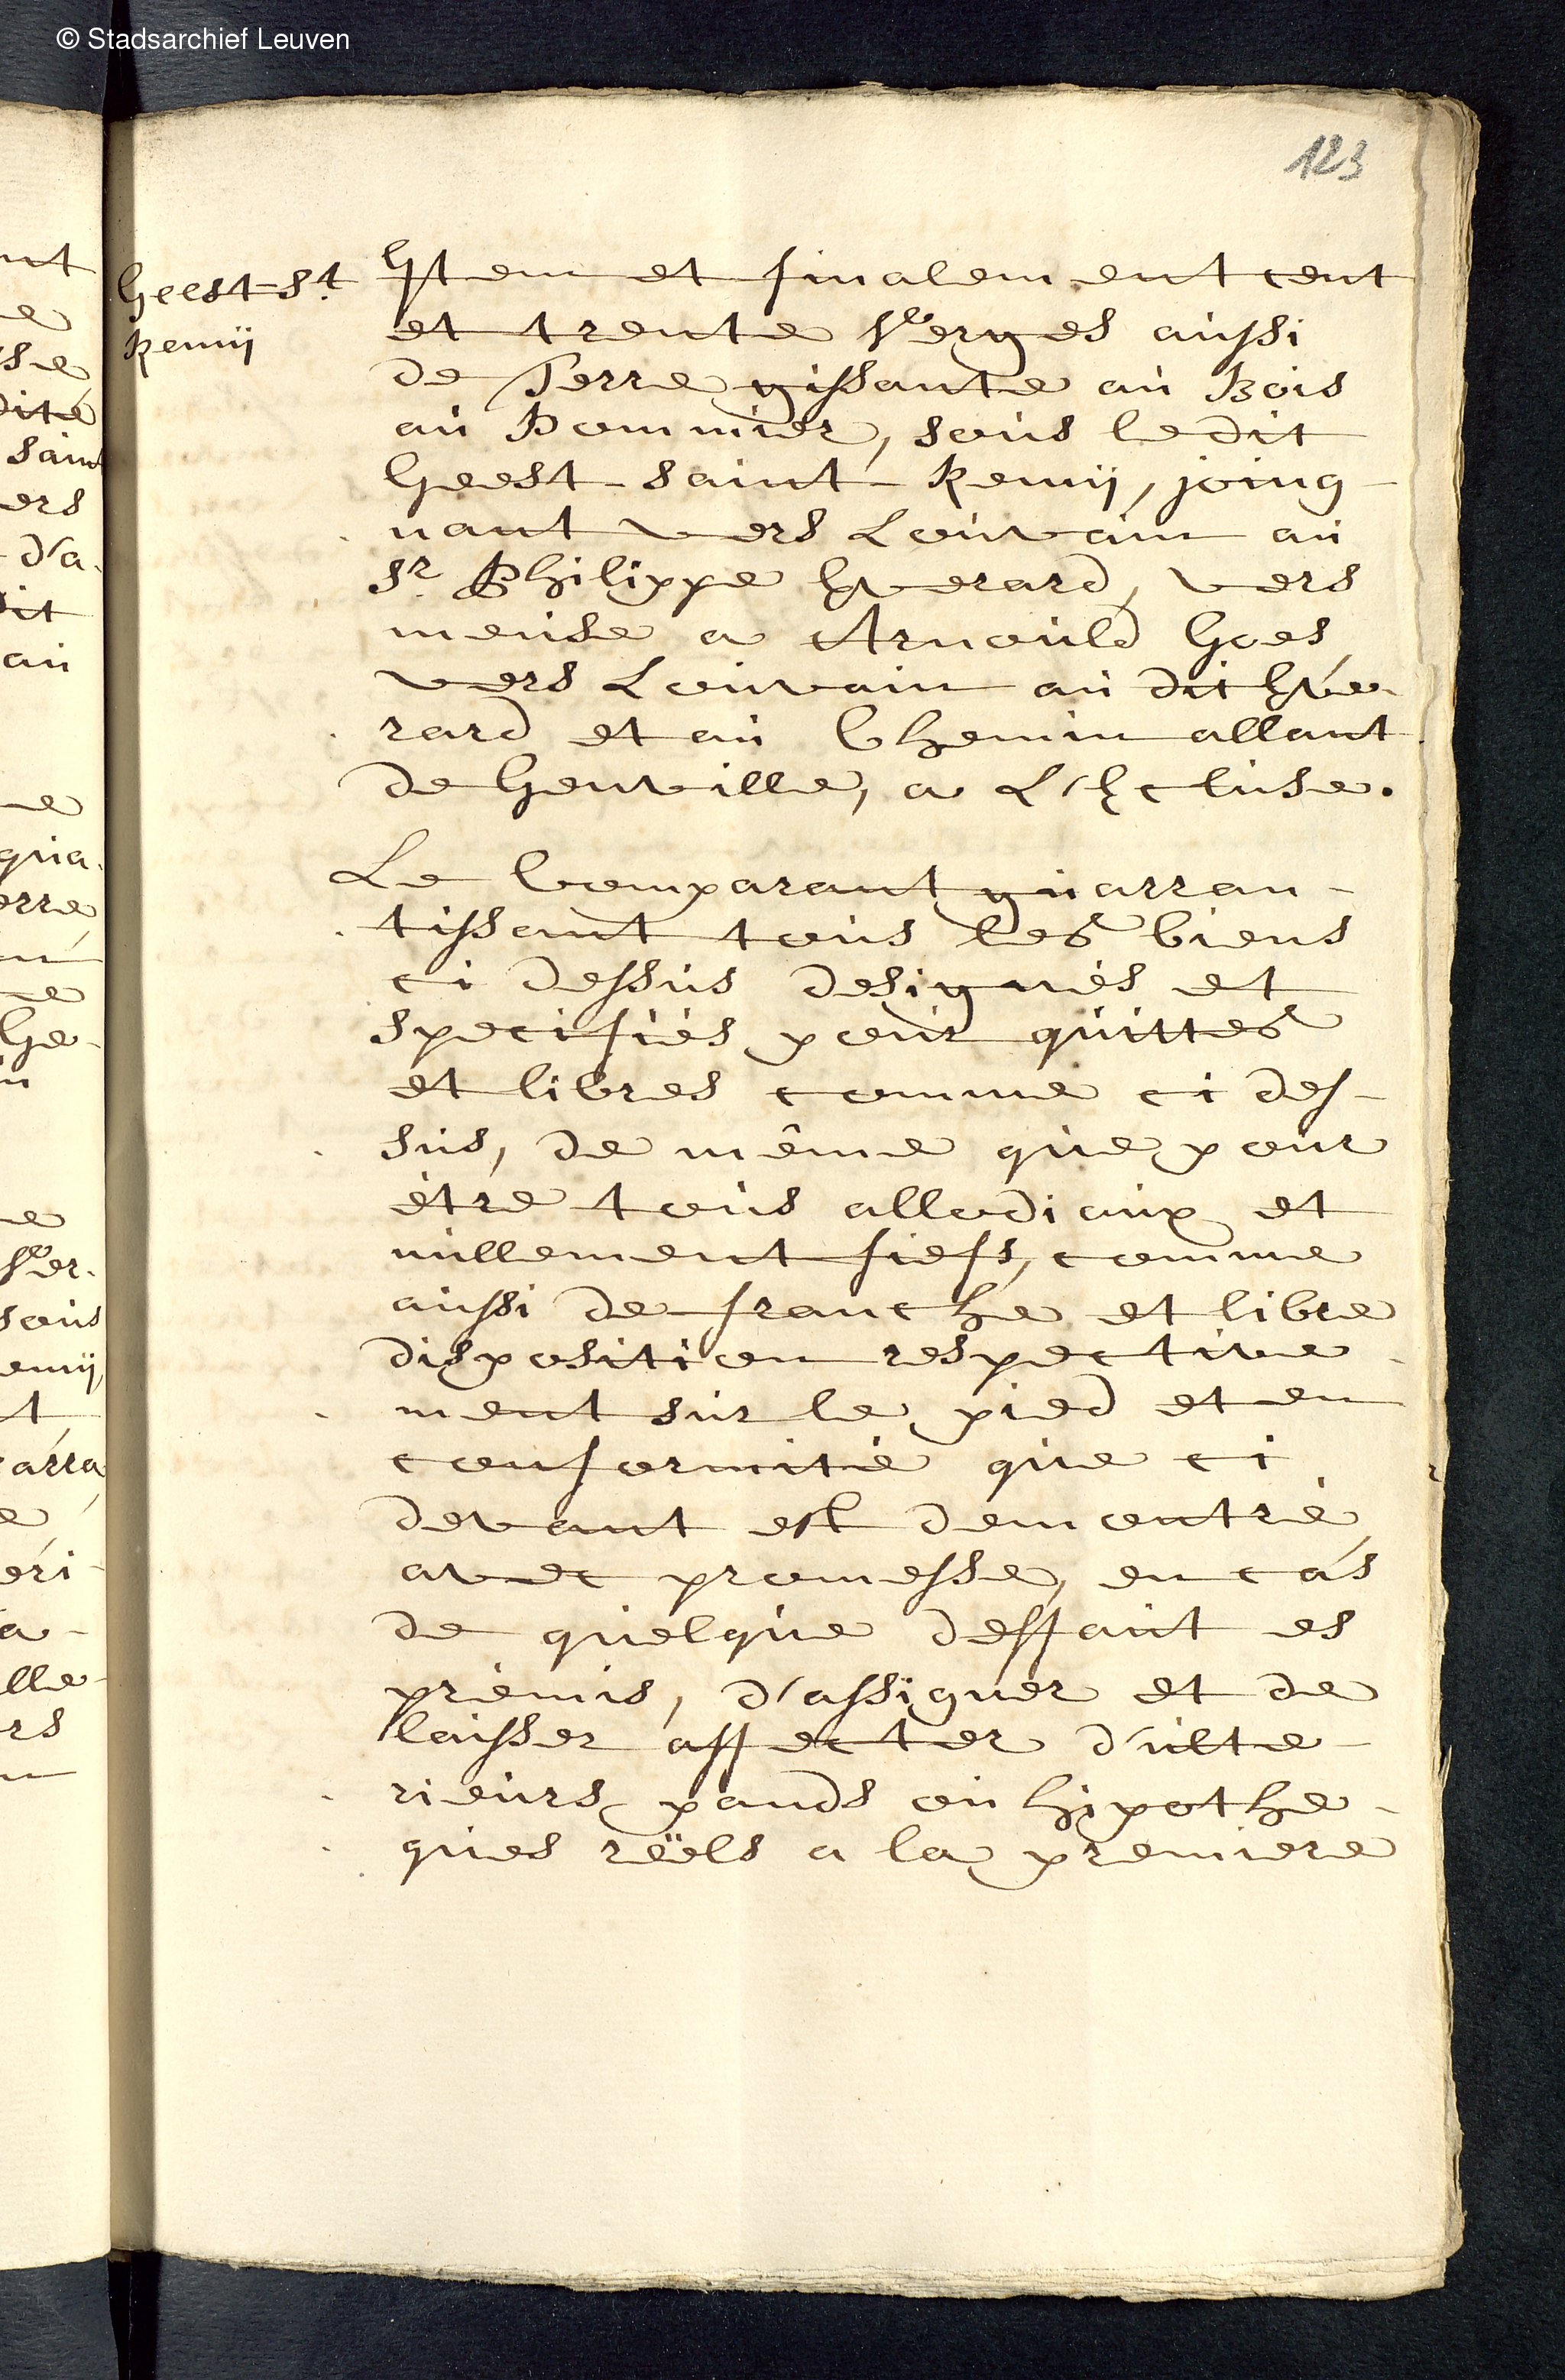 © Stadsarchief Leuven
123
Geest-St.
Remÿ
Item et finalement cent
et trente Verges aussi
de Terre gissante au Bois
au Pommier, sous ledit
Geest-saint-Remÿ, joing-
nant vers Louvain au
Sr. Philippe Everard, vers
meuse a Arnould Goes,
vers Louvain au dit Eve-
rard et au Chemin allant
de Genville, a L'Ecluse.
Le Comparant guarran-
tissant tous les biens
ci dessus designés et
specifiés pour quittes
et libres comme ci des-
sus, de même que pour
être tous allodiaux et
nullement fiefs, comme
aussi de franche et libre
disposition respective-
ment sur le pied et en
conformité que ci
devant est demontré,
avec promesse, en cas
de quelque deffaut es
prémis, d'assigner et de
laisser affecter d'ulte-
rieurs pands ou hipothe-
ques réels a la premiere